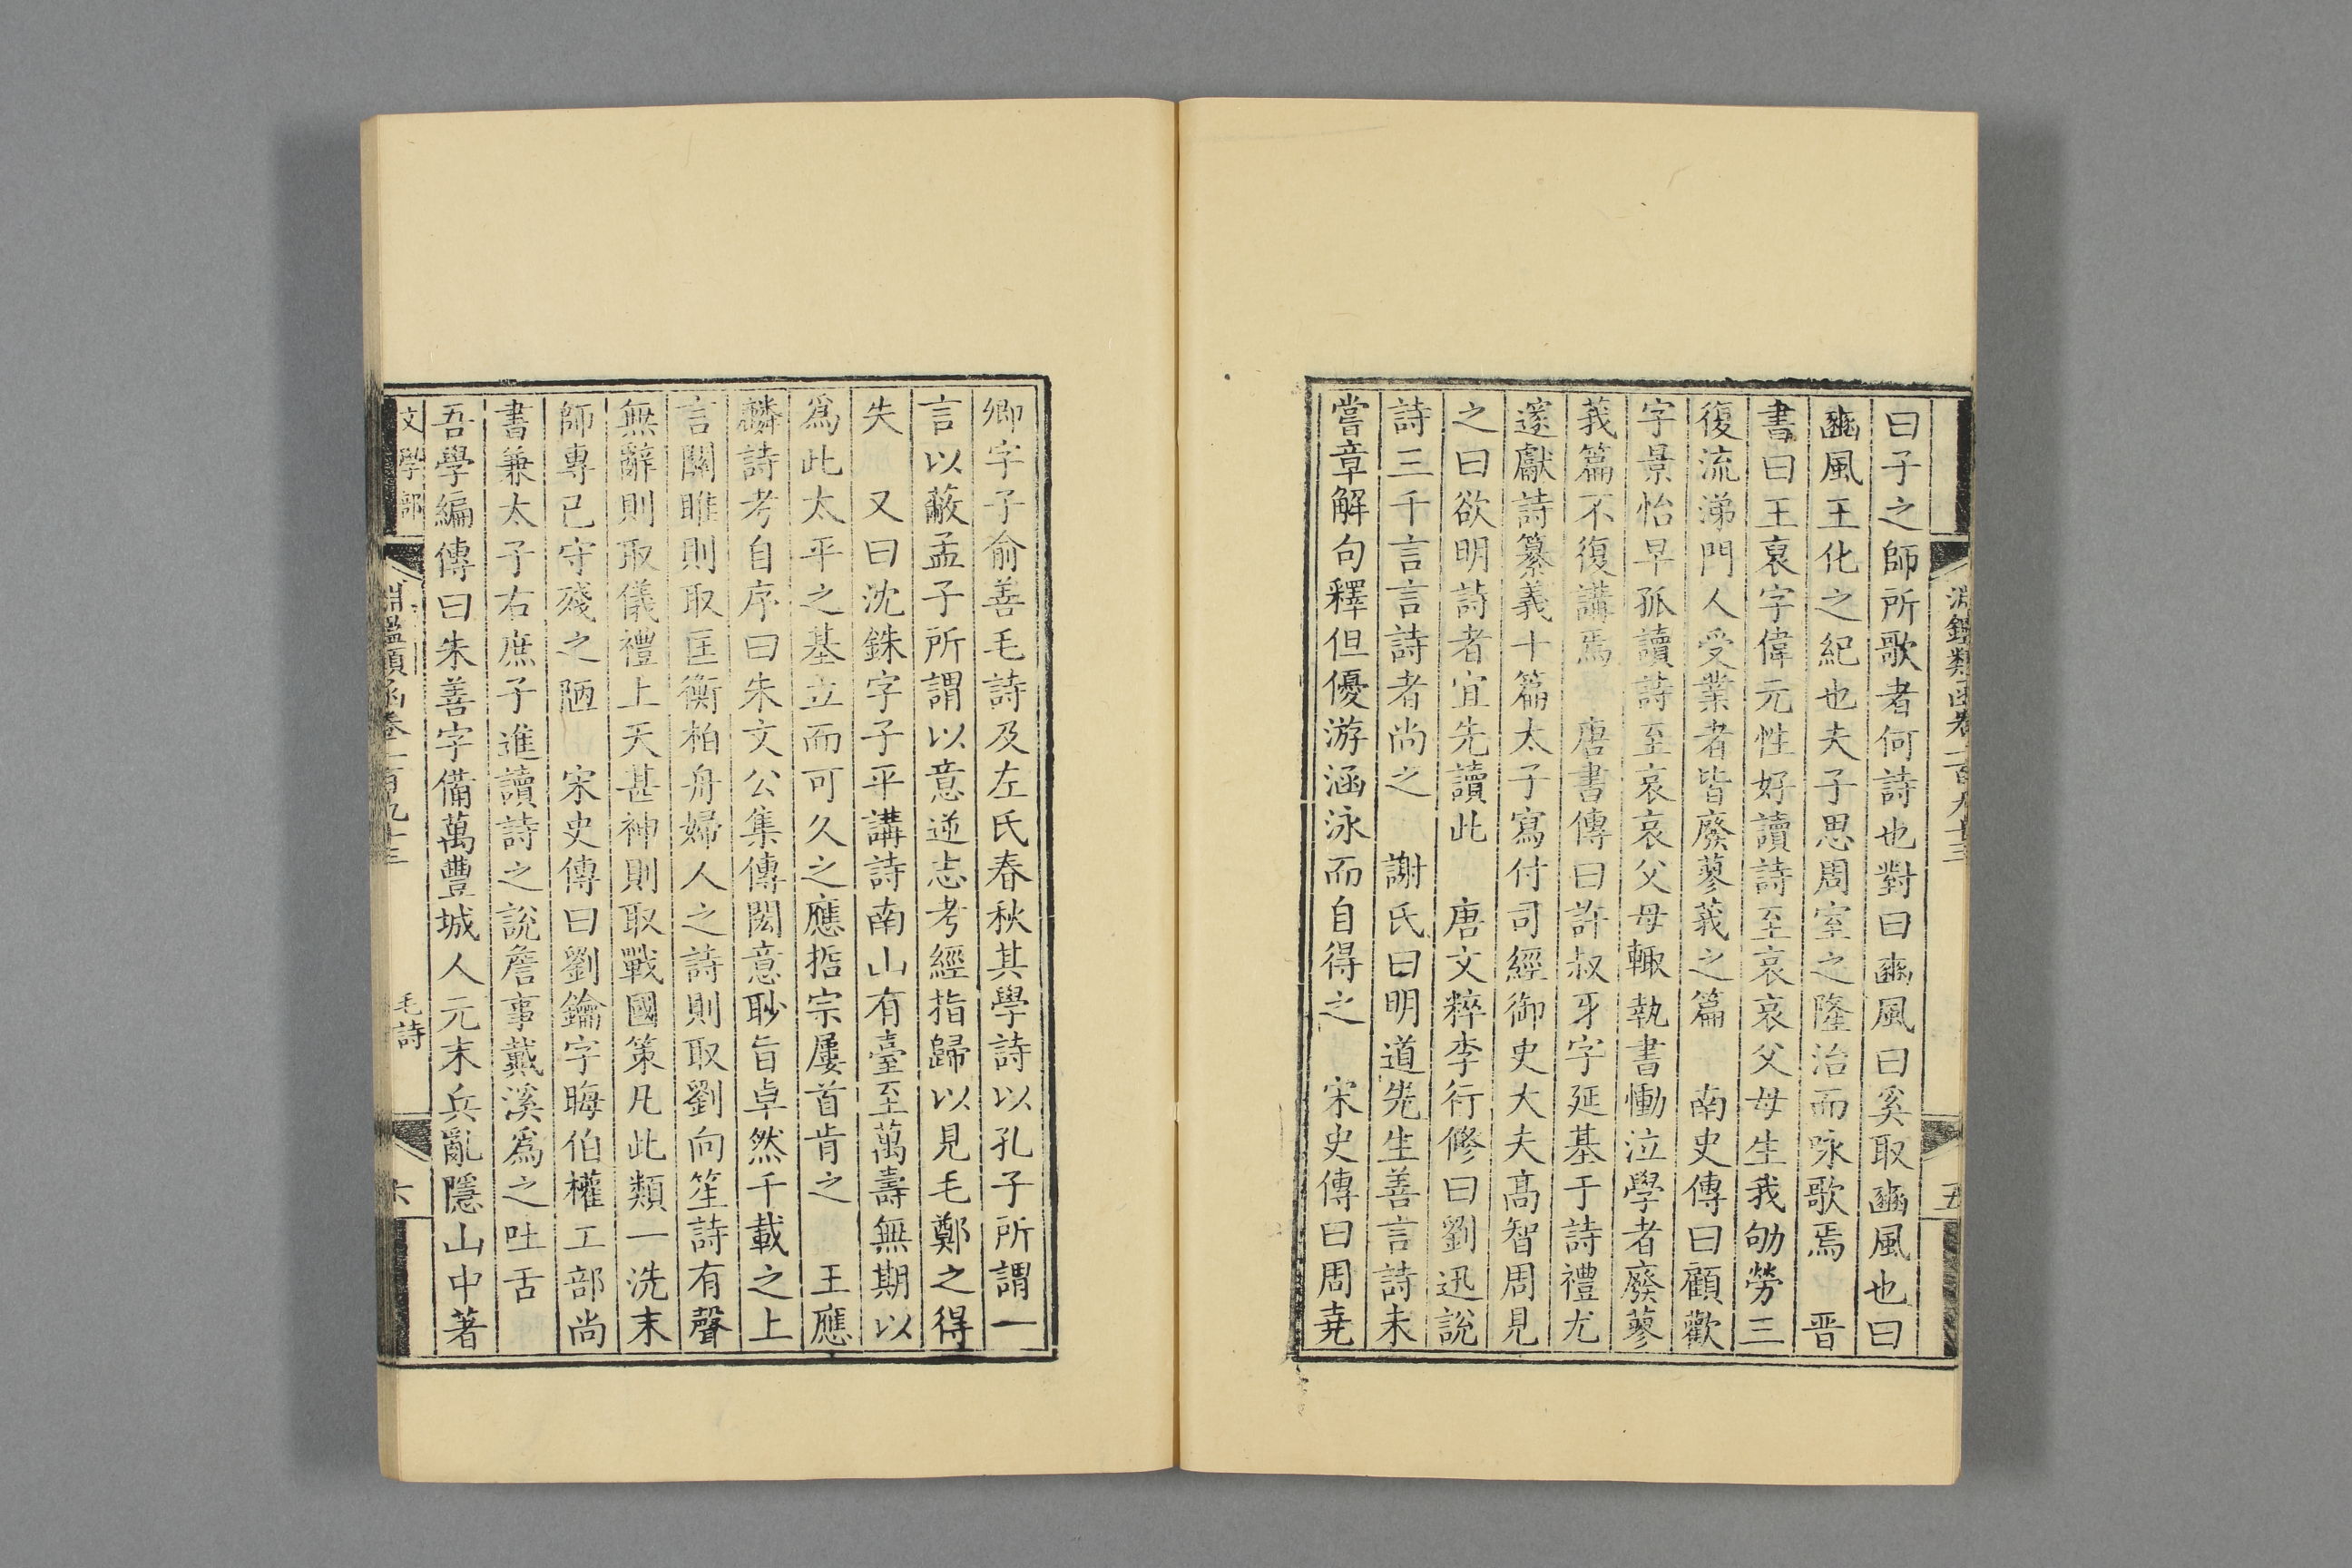 淵鑑類函卷一百九十三
五
曰子之師所歌者何詩也對曰豳風曰奚取豳風也曰
豳風王化之紀也夫子思周室之隆治而咏歌焉　晋
書曰王裒字偉元性好讀詩至哀哀父母生我劬勞三
復流涕門人受業者皆廢蓼莪之篇　南史傳曰顧歡
字景怡早孤讀詩至哀哀父母輙執書慟泣學者廢蓼
莪篇不復講焉　唐書傳曰許叔牙字延基于詩禮尤
邃獻詩纂義十篇太子寫付司經御史大夫髙智周見
之曰欲明詩者宜先讀此　唐文粹李行修曰劉迅說
詩三千言言詩者尚之　謝氏曰明道先生善言詩未
嘗章解句釋但優游涵泳而自得之　宋史傳曰周堯
卿字子俞善毛詩及左氏春秋其學詩以孔子所謂一
言以蔽孟子所謂以意逆志考經指歸以見毛鄭之得
失　又曰沈銖字子平講詩南山有臺至萬壽無期以
爲此太平之基立而可久之應哲宗屢首肯之　王應
麟詩考自序曰朱文公集傳閎意眇旨卓然千載之上
言關雎則取匡衡柏舟婦人之詩則取劉向笙詩有聲
無辭則取儀禮上天甚神則取戰國策凡此類一洗末
師專已守殘之陋　宋史傳曰劉鑰字晦伯權工部尚
書兼太子右庶子進讀詩之說詹事戴溪爲之吐舌
吾學編傳曰朱善字備萬豐城人元末兵亂隱山中著
文學部
淵鑑類函卷一百九十三
毛詩
六